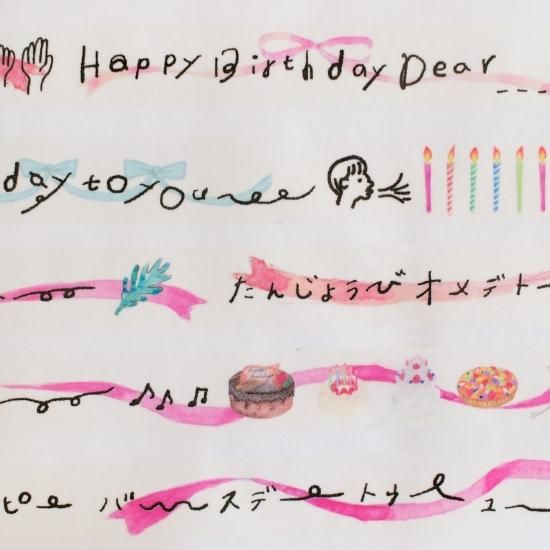 Happy Birthday Dear
day to you
たんじょうびオメデトー
to バースデートゥーユー